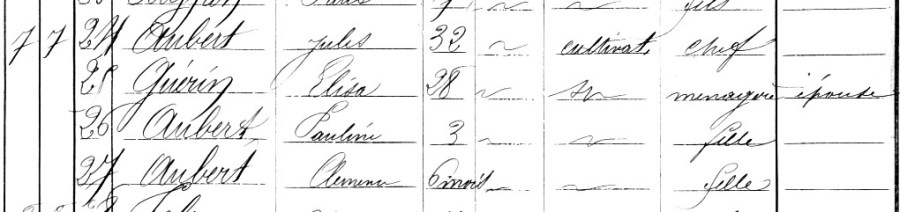 fils
7 7 24 Aubert Jules 32 ~ cultivat chef
25 Guérin Elisa 28 ~ sn menagère épouse
26 Aubert Pauline 3 ~ ~ fille
27 Aubert 6 mois ~ ~ fille
28